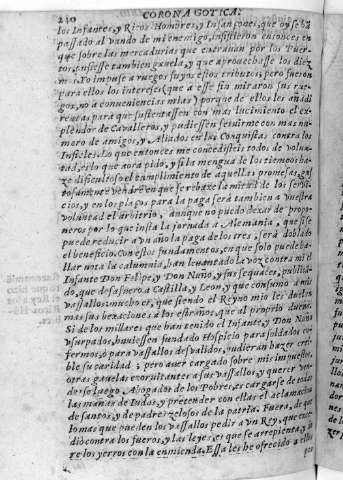 240 CORONA GOTICA.
los Infantes, y Ricos Hombres, y Infançones, que oy se ha
passado al vando de mi enemigo, insistieron entonces en
que sobre las mercadurias que entravan por los Puer-
tos, pusiesse tambien gavela, y que aprovechasse los diez
mos: Yo impuse a ruegos suyos estos tributos; pero fueron
para ellos los interesses (que a esse fin miraron sus rue-
gos, no a conveniencias mias) porque de ellos les añadi
rentas para que sustentassen con mas lucimiento el ex-
plendor de Cavalleros, y pudiessen servirme con mas nu-
mero de amigos, y Aliados en las Conquistas contra los
Infieles. Lo que entonces me concedisteis todos de volun-
tad, es lo que aora pido, y si la mengua de los tiempos ha-
ze dificultoso el cumplimiento de aquellas promesas, gus
tosamente vendrè en que se rebaxe la mitad de los servi-
cios, y en los plaços para la paga serà tambien a vuestra
voluntad el arbitrio, aunque no puedo dexar de propo-
neros por lo que insta la jornada a Alemania, que si se
puede reducir a vn año la paga de los tres, serà doblado
el beneficio. Con estos fundamentos, en que solo puede ha-
llar nota la calumnia, han levantado la voz contra mi el
Infante Don Felipe, y Don Nuño, y sus sequaces, publica-
do, que desafuero a Castilla, y Leon, y que consumo a mis
vassallos: mucho es, que siendo el Reyno mio les duelan
mas sus vexaciones a los estraños, que al proprio dueño.
Si de los millares que han tenido el Infante, y Don Nuño
vsurpados, huviessen fundado Hospicio para soldados en-
fermos, ò para vassallos desvalidos, pudieran hazer crei-
ble su caridad; pero aver cargado sobre mis impuestos
otras gavelas exorbitantes a sus vassallos, y querer ven-
derse luego Abogados de los Pobres, es cargarse de todas
las mañas de Iudas, y pretender con ellas el aclamarlos
de santos, y de padres zelosos de la patria. Fuera, de que
lo mas que pueden los vassallos pedir a vn Rey, que exce-
diò contra los fueros, y las leyes, es que se arrepienta, y do
re los yerros con la enmienda. Essa les he ofrecido a ellos